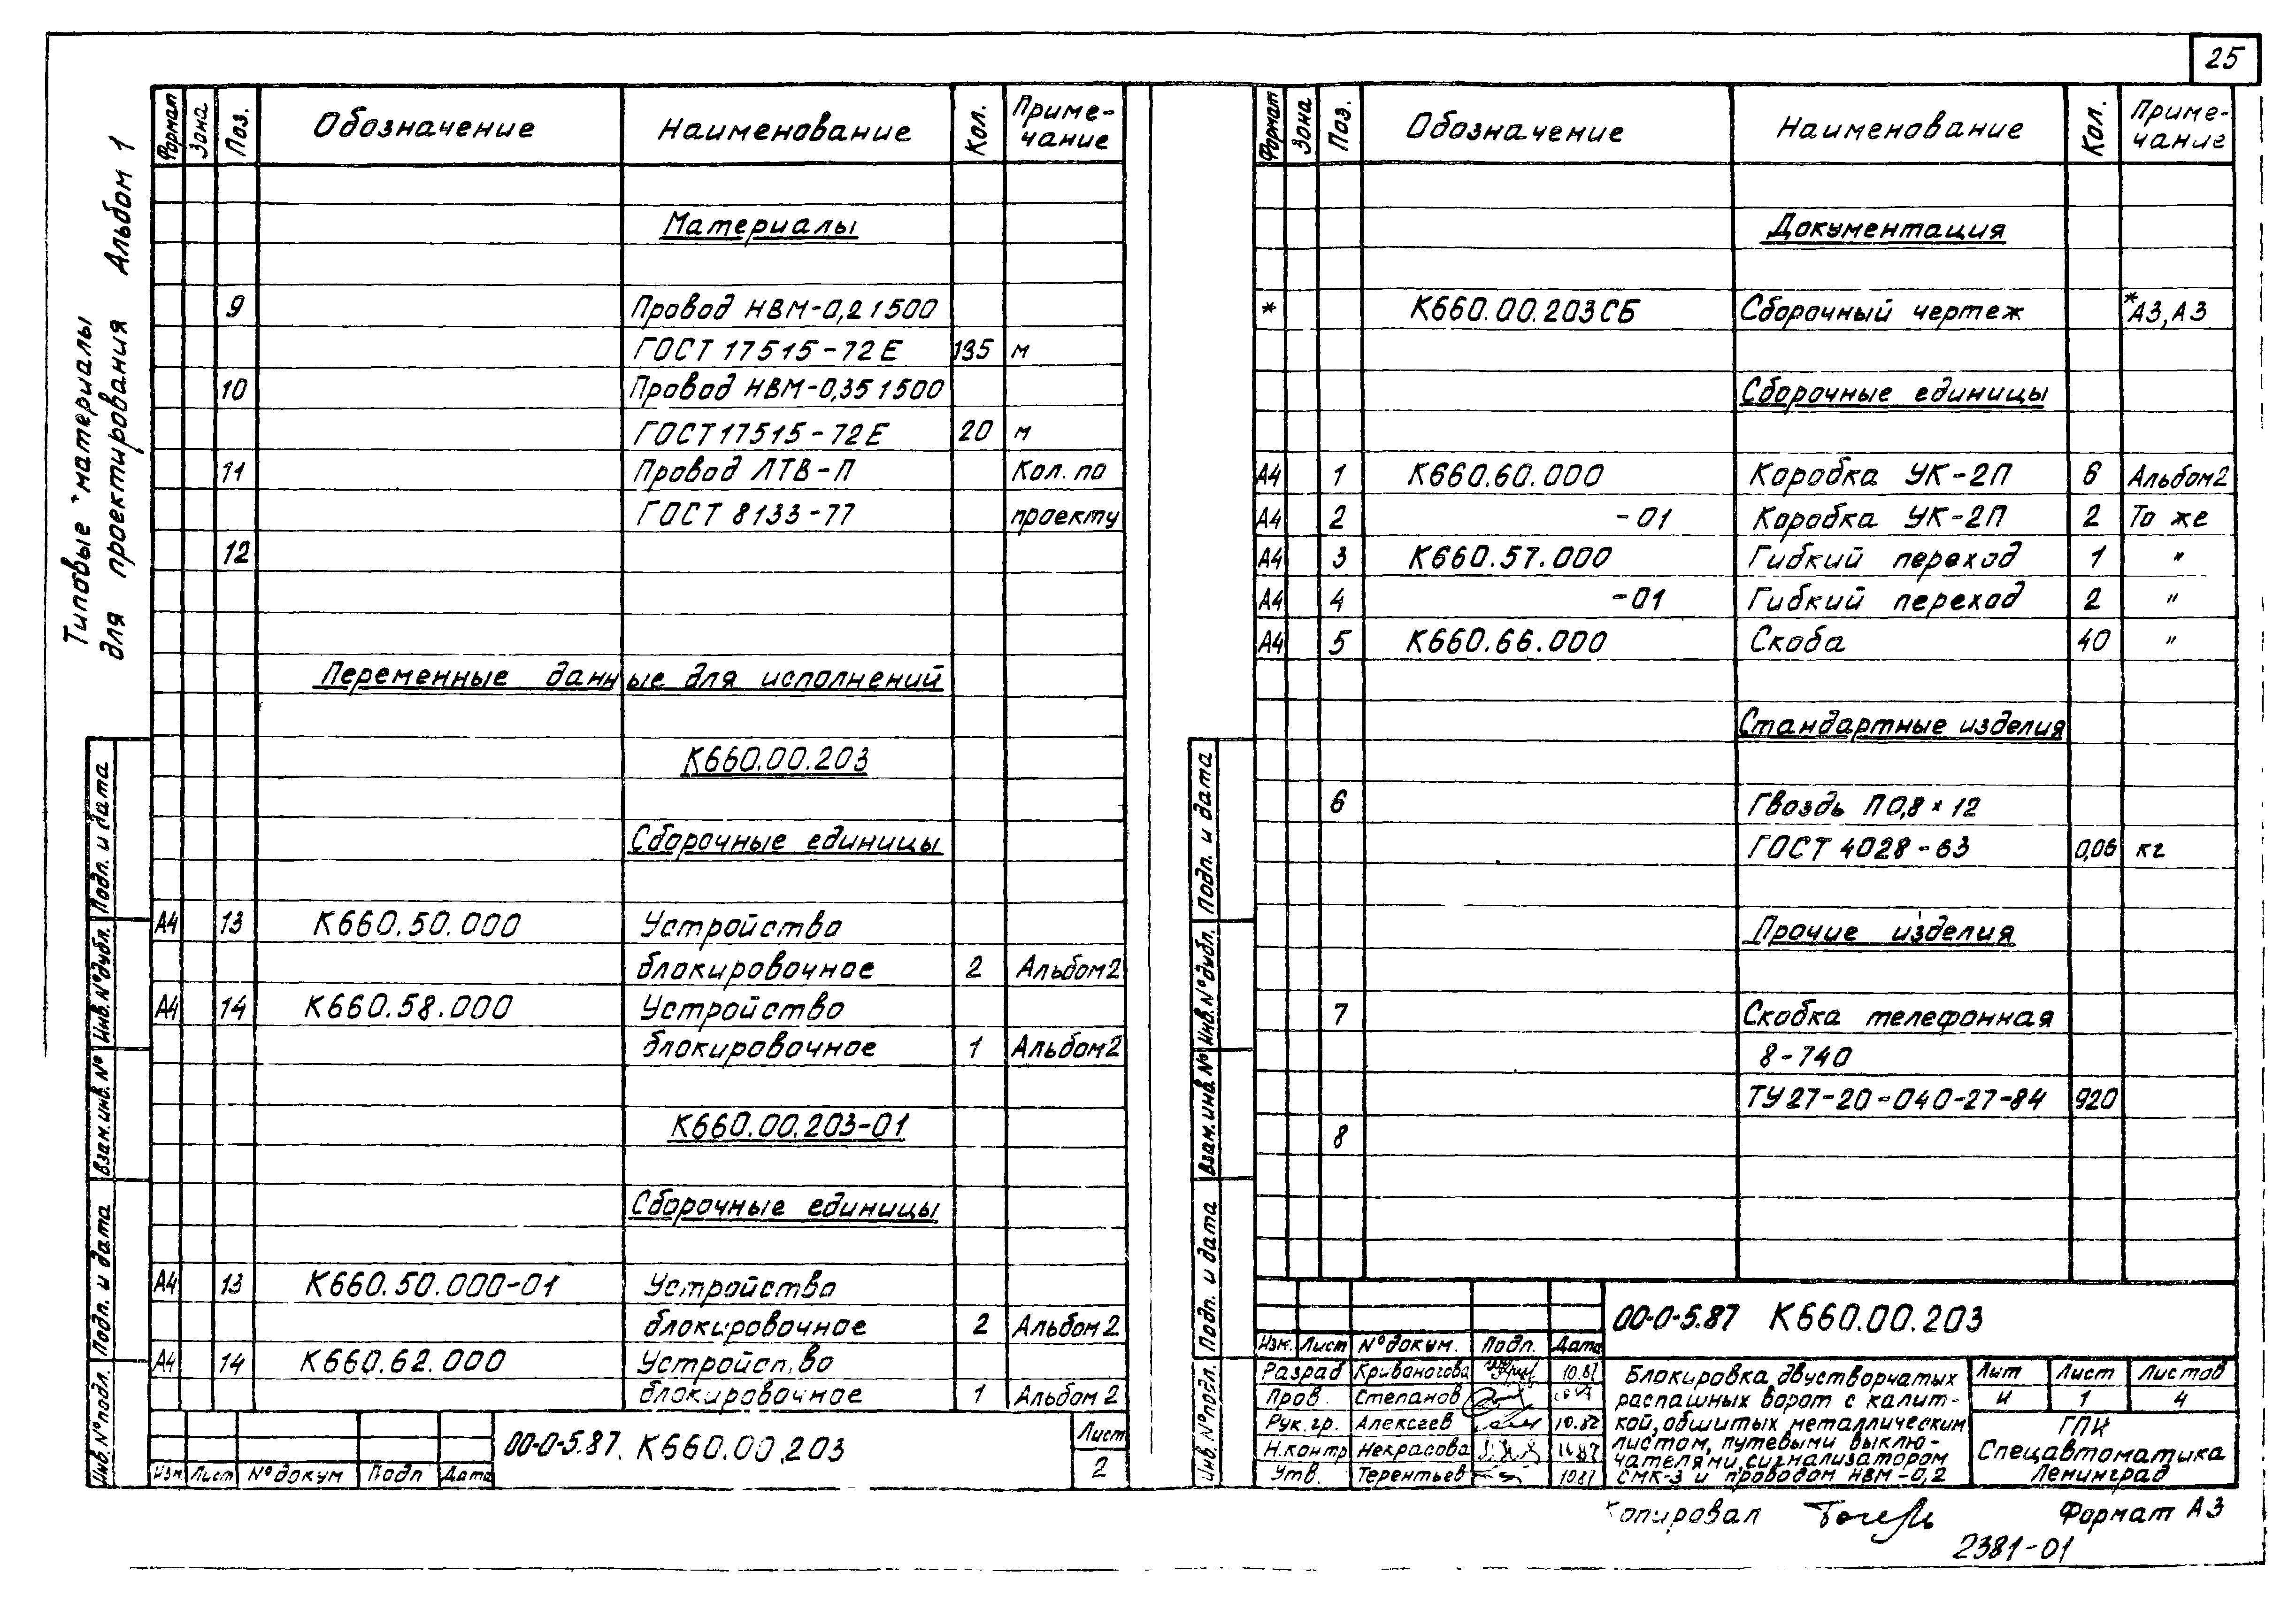 25
Типовые материалы
для проектирования Альбом 1
Формат Зона Поз. Обозначение Наименование Кол. Примечание
Материалы
9 Провод НВМ-0,2 1 500
ГОСТ 17515-72Е 135 м
10 Провод НВМ-0,35 1 500
ГОСТ 17515-72Е 20 м
11 Провод ЛТВ-П Кол. по
ГОСТ 8133-77 проекту
12
Переменные данные для исполнений
К660.00.203
Сборочные единицы
А4 13 К660.50.000 Устройство
блокировочное 2 Альбом 2
А4 14 К660.58.000 Устройство
блокировочное 1 Альбом 2
К660.00.203-01
Сборочные единицы
А4 13 К660.50.000-01 Устройство
блокировочное 2 Альбом 2
А4 14 К660.62.000 Устройство
блокировочное 1 Альбом 2
Инв. № подл. Подп. и дата Взам. инв. № Инв. № дубл. Подп. и дата
Изм Лист № докум Подп Дата
00-0-5.87. К660.00.203
Лист
2
Формат Зона Поз. Обозначение Наименование Кол. Примечание
Документация
* К660.00.203СБ Сборочный чертеж *А3, А3
Сборочные единицы
А4 1 К660.60.000 Коробка УК-2П 6 Альбом 2
А4 2 -01 Коробка УК-2П 2 То же
А4 3 К660.57.000 Гибкий переход 1 "
А4 4 -01 Гибкий переход 2 "
А4 5 К660.66.000 Скоба 40 "
Стандартные изделия
6 Гвоздь П 0,8×12
ГОСТ 4028-63 0,06 кг
Прочие изделия
7 Скобка телефонная
8-740
ТУ 27-20-040-27-84 920
8
Инв. № подл. Подп. и дата Взам. инв. № Инв. № дубл. Подп. и дата
00-0-5.87 К660.00.203
Изм. Лист № докум. Подп. Дата
Разраб Кривоногова 10.87
Пров. Степанов
Рук. гр. Алексеев
Н.контр Некрасова
Утв. Терентьев 10.87
Блокировка двустворчатых
распашных ворот с калит-
кой, обшитых металлическим
листом, путевыми выклю-
чателями, сигнализатором
СМК-3 и проводом НВМ-0,2
Лит Лист Листов
И 1 4
ГПИ
Спецавтоматика
Ленинград
Копировал
Формат А3
2381-01